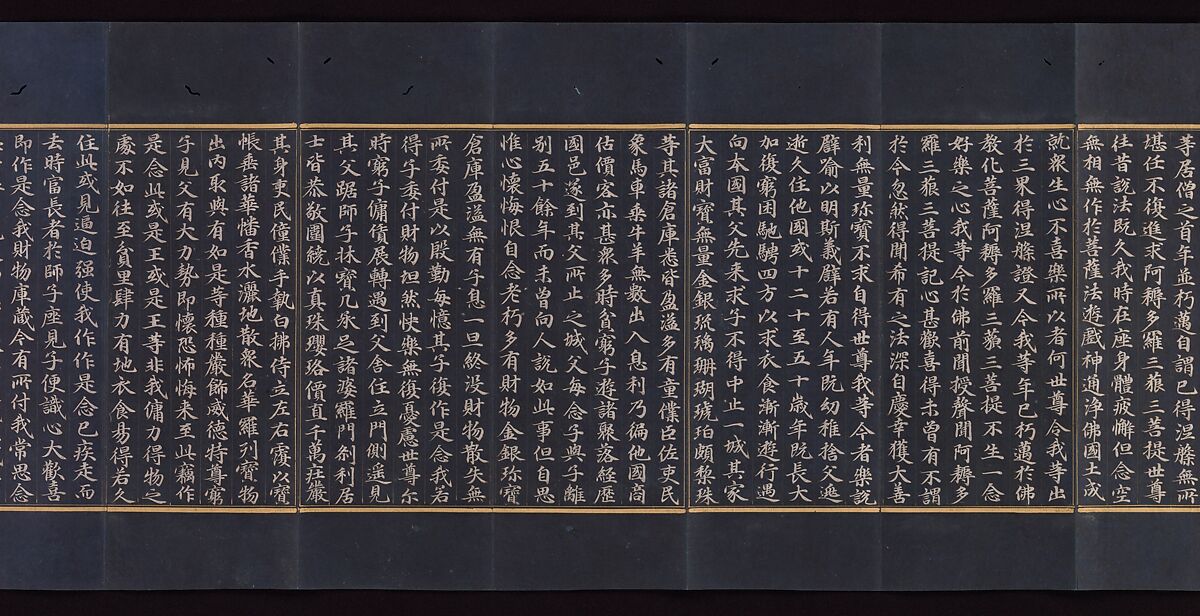 等居僧之首年並朽邁自謂已得涅槃無所
堪任不復進求阿耨多羅三藐三菩提世尊
往昔說法既久我時在座身體疲懈但念空
無相無作於菩薩法遊戲神通淨佛國土成
就衆生心不喜樂所以者何世尊令我等出
於三界得涅槃證又今我等年已朽邁於佛
教化菩薩阿耨多羅三藐三菩提不生一念
好樂之心我等今於佛前聞授聲聞阿耨多
羅三藐三菩提記心甚歡喜得未曾有不謂
於今忽然得聞希有之法深自慶幸獲大善
利無量珎寶不求自得世尊我等今者樂說
譬喻以明斯義譬若有人年既幼稚捨父逃
逝久住他國或十二十至五十歲年既長大
加復窮困馳騁四方以求衣食漸漸遊行遇
向本國其父先來求子不得中止一城其家
大富財寶無量金銀琉璃珊瑚琥珀頗梨珠
等其諸倉庫悉皆盈溢多有童僕臣佐吏民
象馬車乘牛羊無數出入息利乃徧他國商
估價客亦甚衆多時貧窮子遊諸聚落經歷
國邑遂到其父所止之城父每念子與子離
別五十餘年而未曾向人說如此事但自思
惟心懷悔恨自念老朽多有財物金銀珎寶
倉庫盈溢無有子息一旦終沒財物散失無
所委付是以殷勤每憶其子復作是念我若
得子委付財物坦然快樂無復憂慮世尊尔
時窮子傭賃展轉遇到父舍住立門側遥見
其父踞師子牀寶几承足諸婆羅門剎利居
士皆恭敬圍繞以真珠瓔珞價直千萬莊嚴
其身吏民僮僕手執白拂侍立左右覆以寶
帳垂諸華幡香水灑地散衆名華羅列寶物
出內取與有如是等種種嚴飾威德特尊窮
子見父有大力勢即懷恐怖悔來至此竊作
是念此或是王或是王等非我傭力得物之
處不如往至貧里肆力有地衣食易得若久
住此或見逼迫强使我作作是念已疾走而
去時富長者於師子座見子便識心大歡喜
即作是念我財物庫藏今有所付我常思念